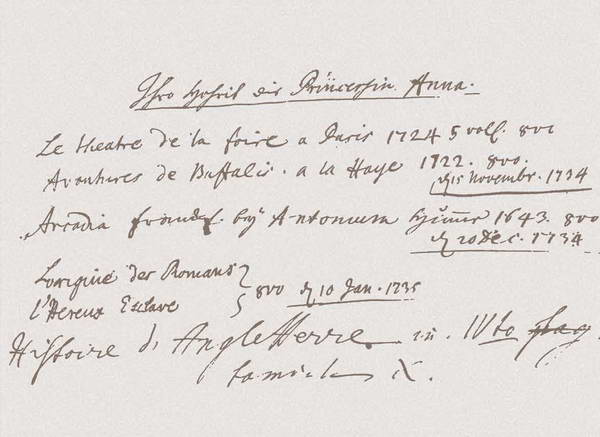 Ihro Hoheit die Princessin Anna.
Le theatre de la foire a Paris 1724 5 voll. 8vo
Avantures de Buffalis. a la Haye 1722. 8vo.
d 15 Novembr. 1734
Arcadia by Antonium 1643. 8vo
d 20 Dec. 1734
Lorrigine der Romans
l'Hereux Esclave
8vo d 10 Jan. 1735
Histoire d' Angleterre in IVto
X.